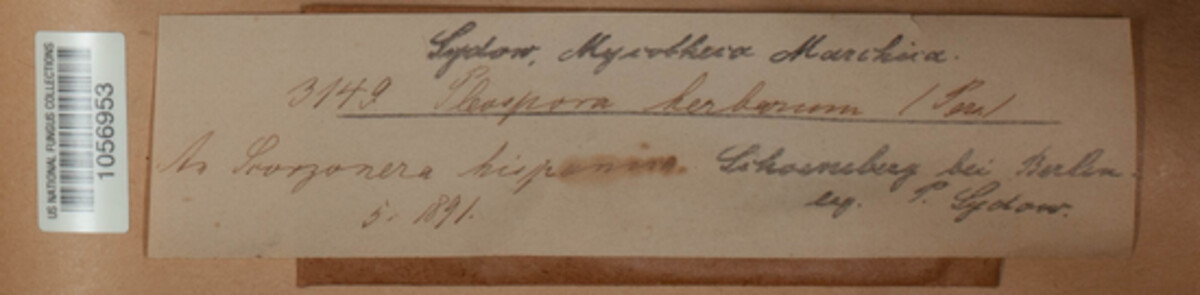 US NATIONAL FUNGUS COLLECTIONS
1056953
Sydow, Mycotheca Marchica.
3149. Pleospora herbarum (Pers)
Scorzonera hispanica. Schoeneberg bei Berlin.
5. 1891. leg. P. Sydow.